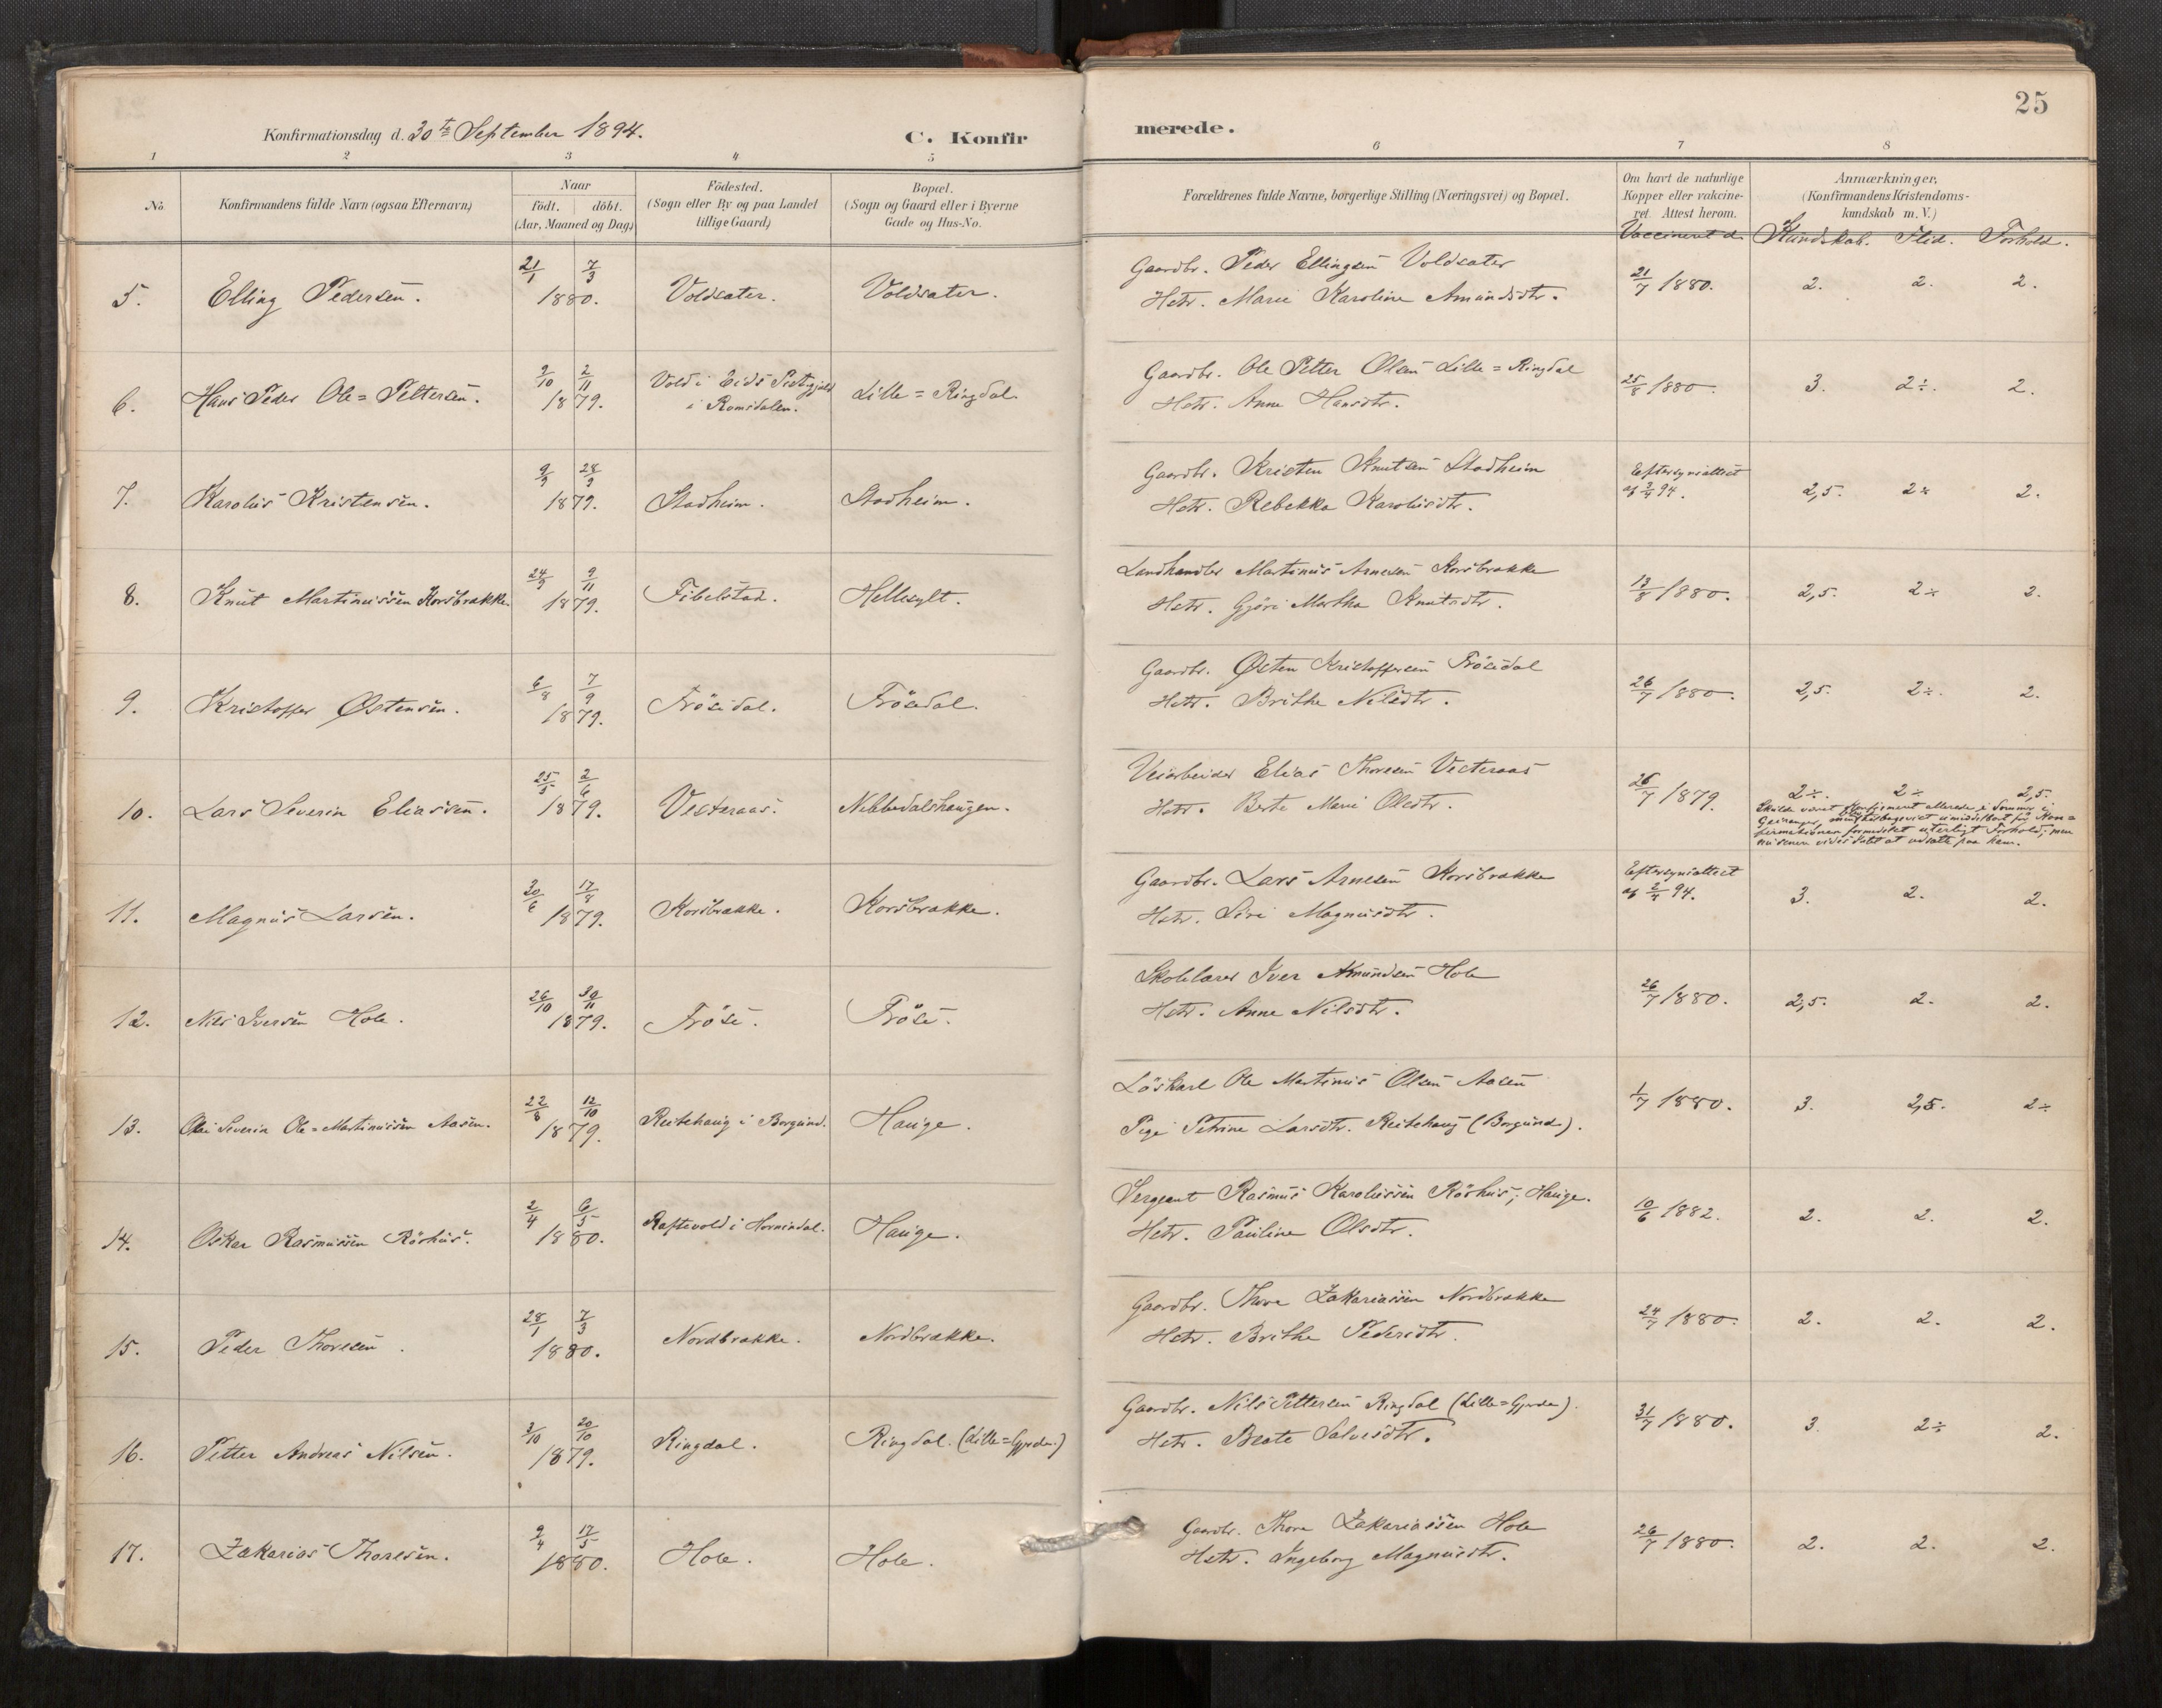 25
Konfirmationsdag d. 30te September 1894.
C. Konfirmerede.
1 2 3 4 5 6 7 8
No. Konfirmandens fulde Navn (ogsaa Efternavn) Naar födt. döbt. (Aar, Maaned og Dag.) Födested. (Sogn eller By og paa Landet tillige Gaard) Bopæl. (Sogn og Gaard eller i Byerne Gade og Hus-No. Forældrenes fulde Navne, borgerlige Stilling (Næringsvei) og Bopæl. Om havt de naturlige Kopper eller vakcineret. Attest herom. Anmærkninger, (Konfirmandens Kristendomskundskab m. V.)
Vaccineret d. Kundskab. Flid. Forhold.
5. Elling Pedersen. 21/1 7/3 1880. Voldsæter. Voldsæter. Gaardbr. Peder Ellingsen Voldsæter 21/7 1880. 2. 2. 2.
Hstr. Marie Karoline Amundsdtr.
6. Hans Peder Ole=Pettersen. 9/10 2/11 1879. Vold i Eids Prstgjeld i Romsdalen. Lille=Ringdal Gaardbr. Ole Petter Olsen Lille=Ringdal 25/8 1880. 3. 2÷. 2.
Hstr. Anne Hansdtr.
7. Karolus Kristensen. 9/9 28/9 1879. Stadheim. Stadheim. Gaardbr. Kristen Knutsen Stadheim Eftersynsattest af 2/4 94. 2,5. 2÷ 2.
Hstr. Rebekka Karolusdtr.
8. Knut Martinussen Korsbrække. 24/9 9/11 1879. Fibelstad. Hellesylt. Landhandler Martinus Arnesen Korsbrække 13/8 1880. 2,5. 2÷ 2.
Hstr. Gjöri Martha Knutsdtr.
9. Kristoffer Østensen. 6/8 7/9 1879. Fröisdal. Fröisdal. Gaardbr. Østen Kristoffersen Fröisdal 26/7 1880. 2,5. 2÷. 2.
Hstr. Brithe Nilsdtr.
10. Lars Severin Eliassen. 25/5 2/6 1879. Vesteraas. Nebbedalshaugen. Veiarbeider Elias Thoresen Vesteraas 26/7 1879. 2÷. 2÷ 2,5.
Hstr. Berte Marie Olsdtr. Skulde været konfirmeret allerede i Sommer i
Geiranger, men blev tilbagevist umiddelbart før Kon=
firmationen formedelst uterligt Forhold; men
11. Magnus Larsen. 30/6 17/8 1879. Korsbrække. Korsbrække. Gaardbr. Lars Arnesen Korsbrække Eftersynsattest af 2/4 94. 3. 2. 2.
Hstr. Siri Magnusdtr.
12. Nils Iversen Hole. 26/10 30/11 1879. Fröise. Fröise. Skolelærer Iver Amundsen Hole 26/7 1880. 2,5. 2. 2.
Hstr. Anne Nilsdtr.
13. Olai Severin Ole=Martinussen Aasen. 22/8 12/10 1879. Reitehaug i Borgund. Hauge. Löskarl Ole Martinus Olsen Aasen 1/7 1880. 3. 2,5. 2÷
Pige Petrine Larsdtr. Reitehaug (Borgund).
14. Oskar Rasmussen Rörhus. 2/4 6/5 1880. Raftevold i Hornindal. Hauge. Sergeant Rasmus Karolussen Rörhus; Hauge. 10/6 1882. 2. 2. 2.
Hstr. Pauline Olsdtr.
15. Peder Thoresen. 28/1 7/3 1880. Nordbrække. Nordbrække. Gaardbr. Thore Zakariassen Nordbrække 24/7 1880. 2. 2. 2.
Hstr. Brithe Pedersdtr.
16. Petter Andreas Nilsen. 3/10 20/10 1879. Ringdal. Ringdal. (Lille=Gjerde.) Gaardbr. Nils Pettersen Ringdal (Lille=Gjerde). 31/7 1880. 3. 2÷ 2.
Hstr. Beate Salvesdtr.
17. Zakarias Thoresen. 9/4 17/5 1880. Hole. Hole. Gaardbr. Thore Zakariassen Hole 26/7 1880. 2. 2. 2.
Hstr. Ingeborg Magnusdtr.